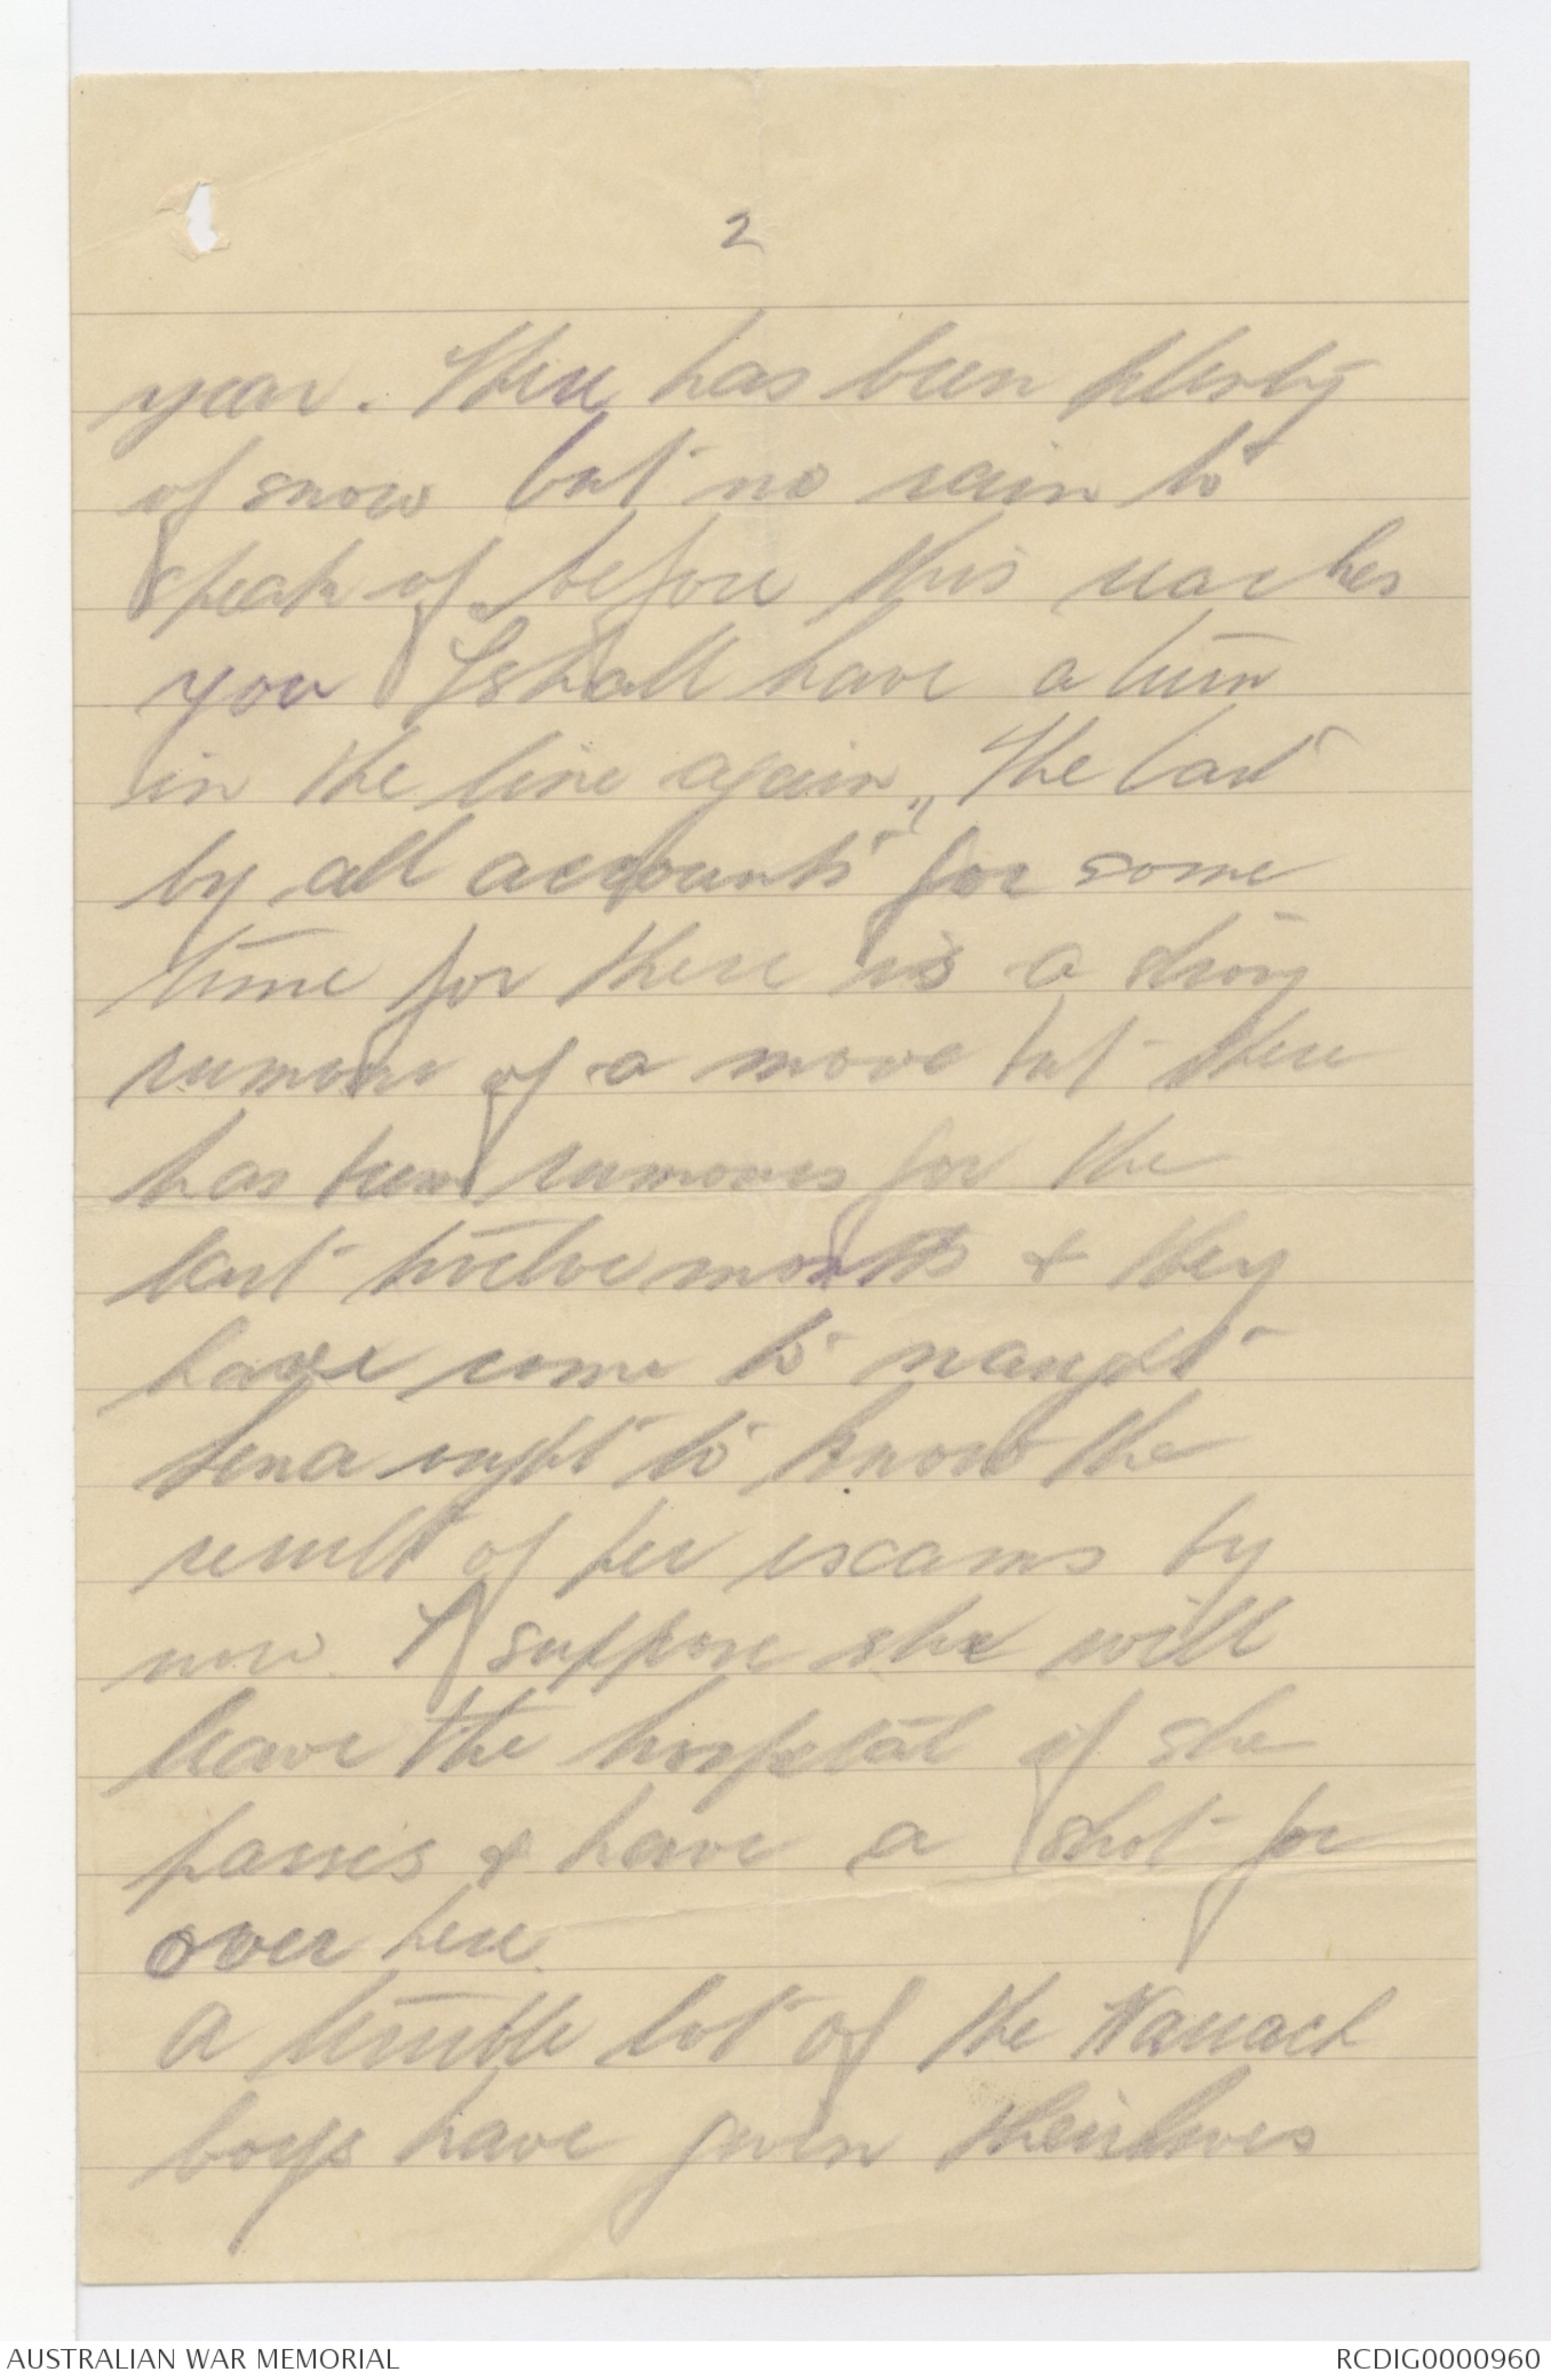 2
year. There has been plenty
of snow but no rain to
speak of before this reaches
you I shall have a turn
in the line again, "The last
by all accounts" for some
time for there is a strong
rumour of a move but there
has been rumours for the
last twelve months & they
have come to naught
Lena ought to know the
result of her exams by
now. I suppose she will
leave the hospital if she
passes & have a shot for
over here.
A terrible lot of the
boys have given their lives
AUSTRALIAN WAR MEMORIAL
RCDIG0000960